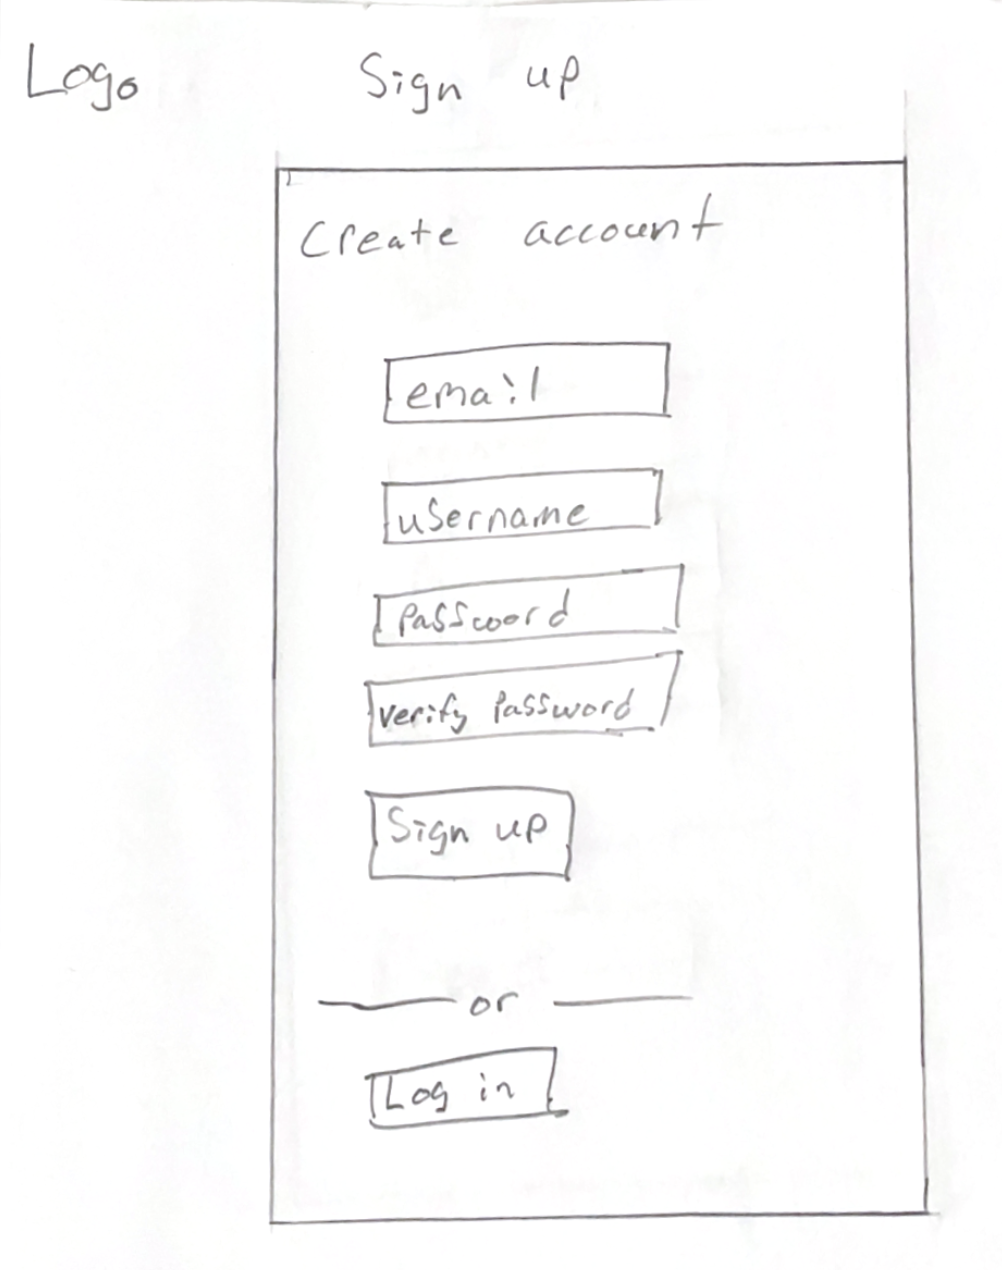 Logo Sign up
Create account
email
username
Password
verify Password
Sign up
or
Log in